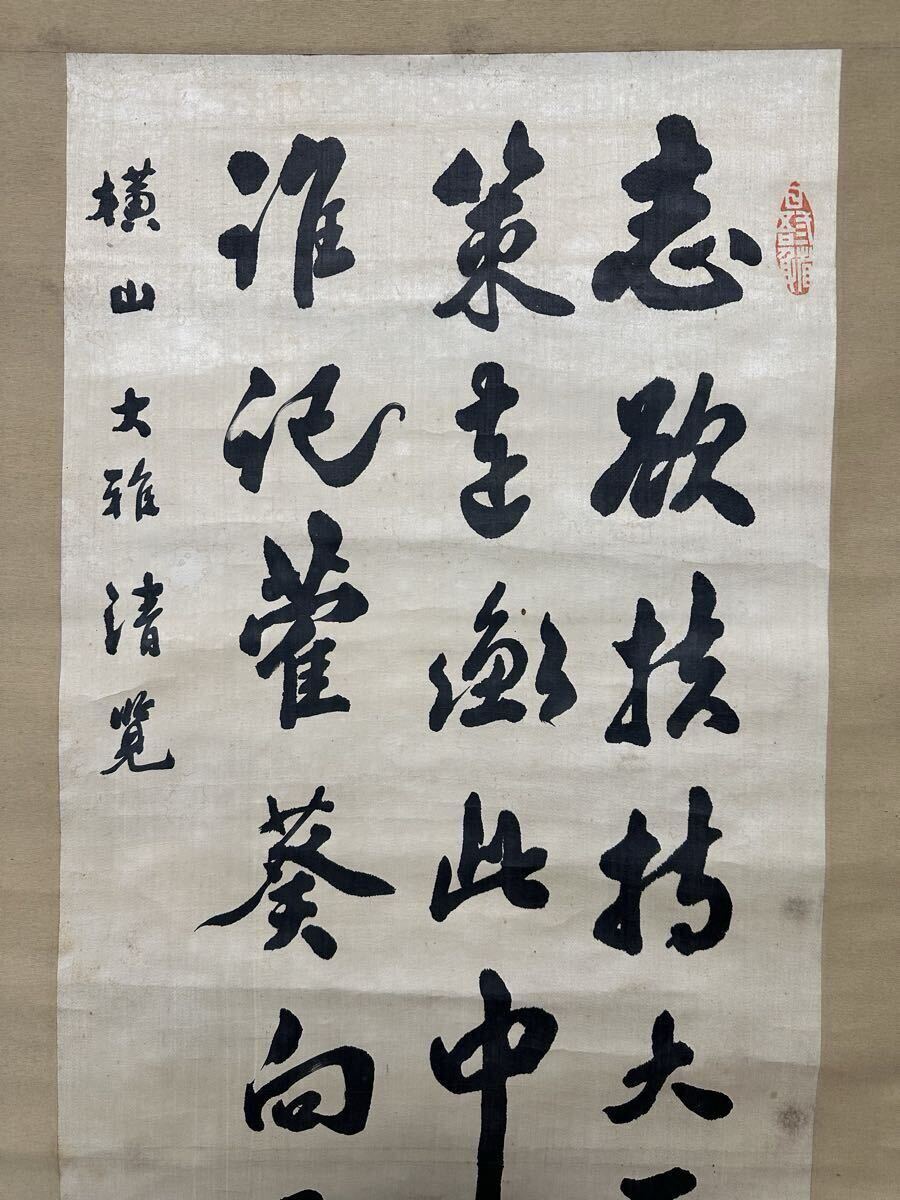 志欲扶持大
策違衡此中
誰記藿葵向
橫山大雅清覽